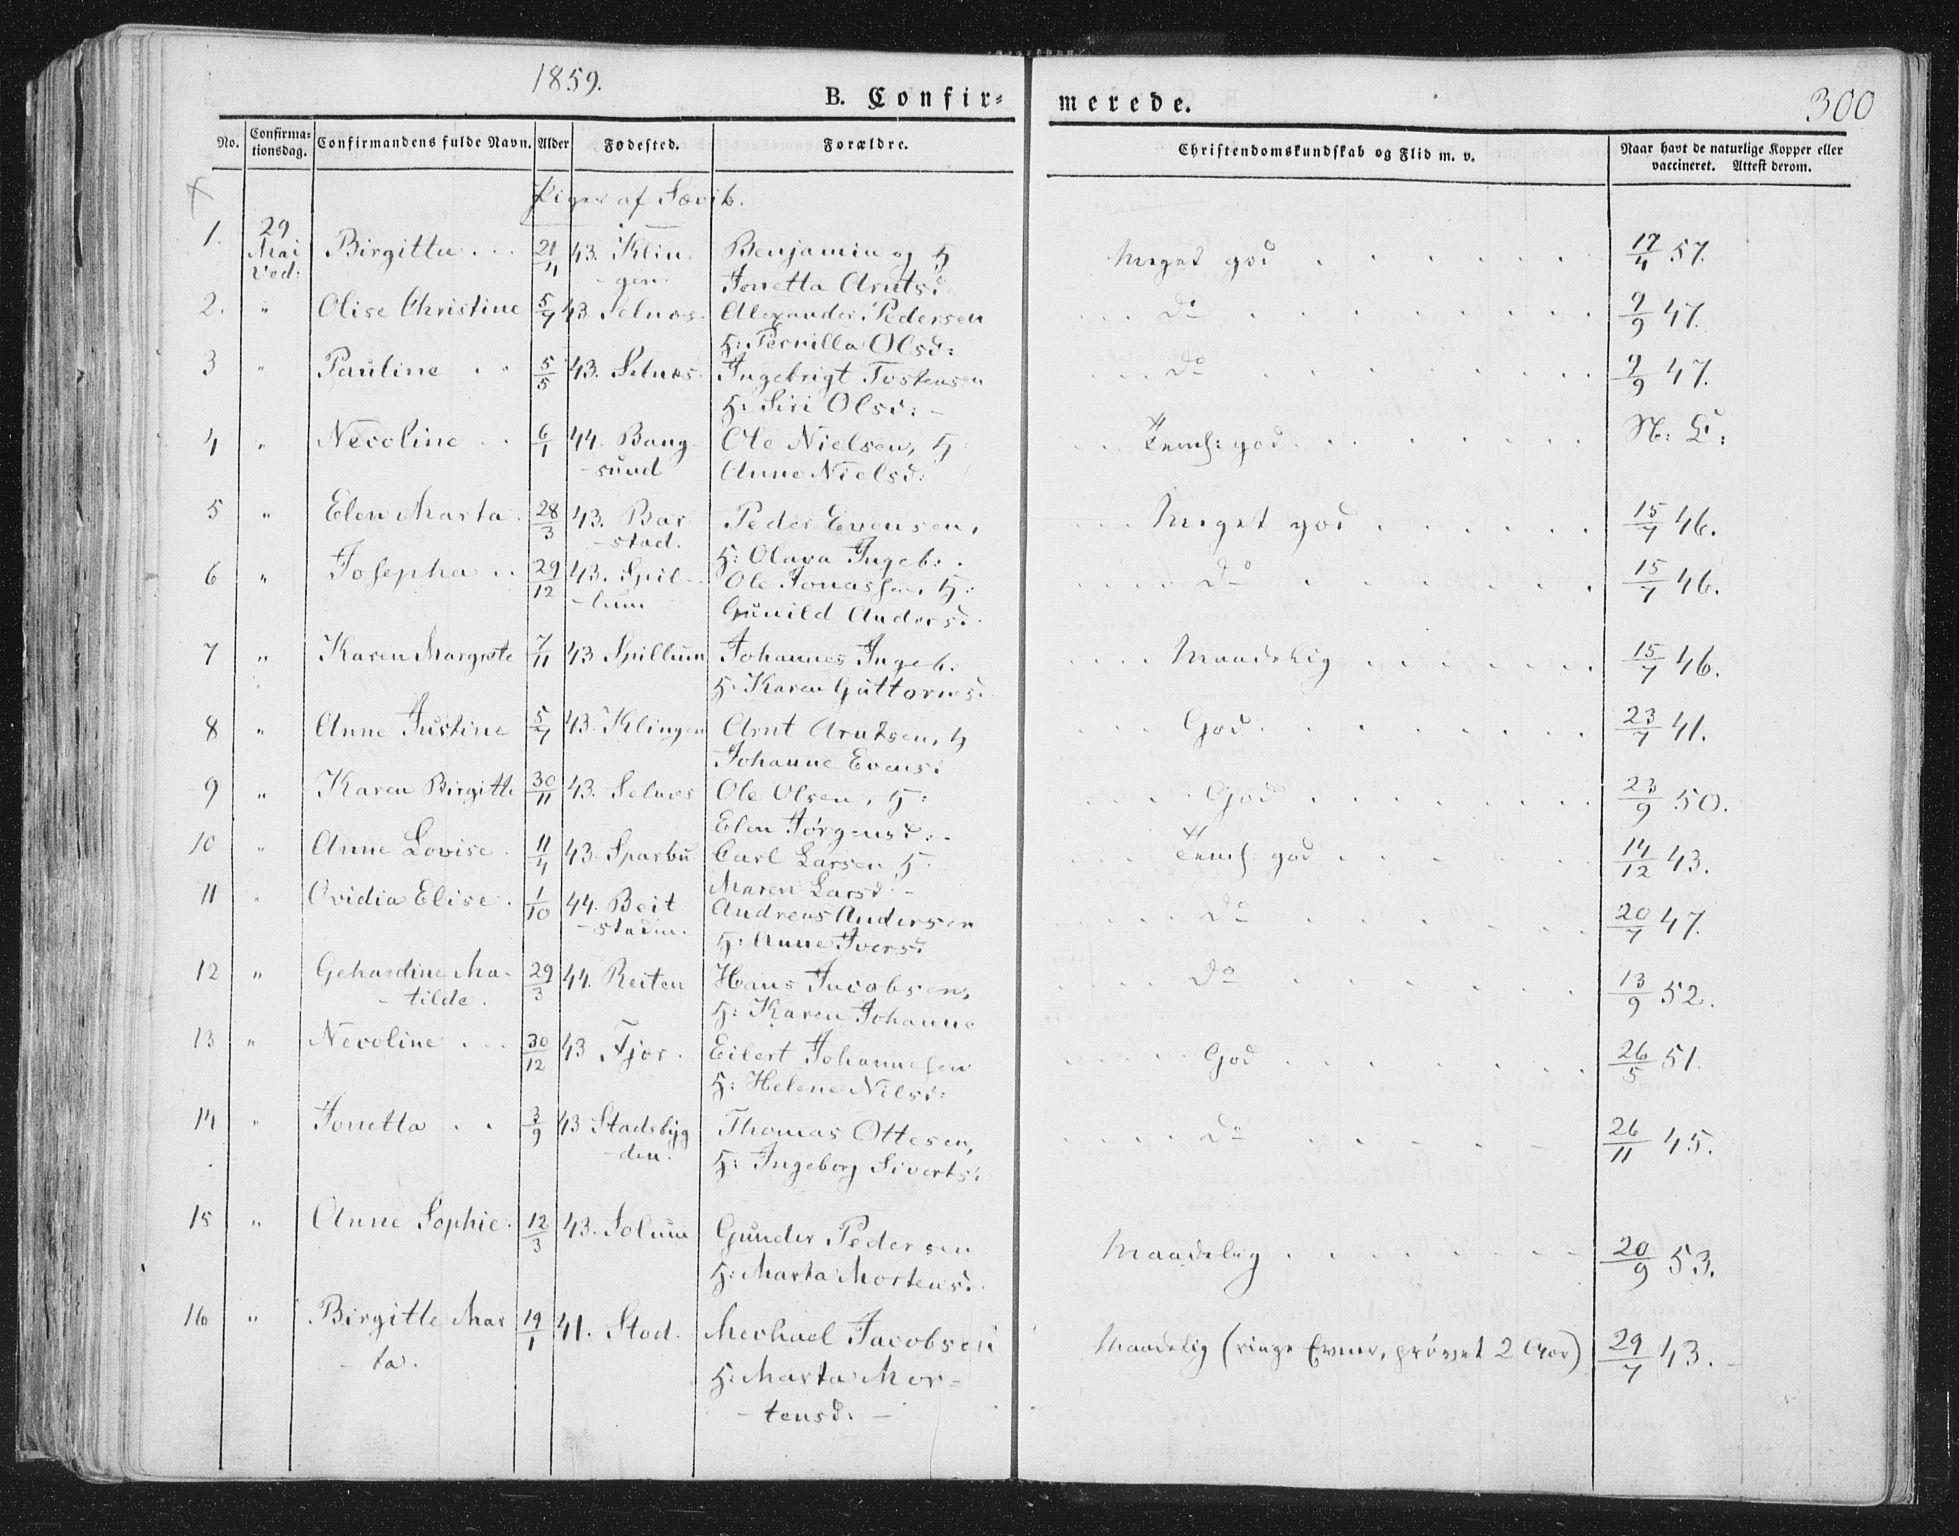 1859.
B. Confir-
merede.
300
No.
Confirma-
tionsdag.
Confirmandens fulde Navn.
Alder
Fødested.
Forældre.
Christendomskundskab og Flid m. v.
Naar havt de naturlige Kopper eller
vaccineret. Attest derom.
Piger af Sævik.
1. 29 Mai Birgitta . . . 21/4 43. Klin- Benjamin og H Meget god . . . . . . 17/4 57.
-gen. Jonetta Arntsd.
2. " Olise Christine 5/7 43. Selnæs. Alexander Pedersen . . . Do . . . . . . 9/9 47.
H: Pernilla Olsd:
3 " Pauline . . 5/5 43. Selnæs. Ingebrigt Tostensen . . . Do . . . . . . 9/9 47.
H: Siri Olsd: -
4 " Necoline . . 6/1 44. Bang- Ole Nielsen, H . . Temel: god . . . . . .
-sund Anne Nielsd:
5 " Elen Marta . 28/3 43. Bar Peder Evensen, . . . Meget god . . . . . . 15/7 46.
-stad. H: Olava Ingeb: .
6 " Josepha . . 29/12 43. Spil- Ole Jonassen, H: . . . . Do . . . . . . 15/7 46.
-lum Gunild Andersd.
7 " Karen Margrete 7/11 43 Spillum Johannes Ingeb. . . . . Maadelig . . . . . . 15/7 46.
H: Karen Guttorms.
8 " Anne Justine 5/7 43. Klingen Arnt Arntsen, H . . . God . . . . . . 23/7 41.
Johanne Evensd
9 " Karen Birgitte 30/11 43. Selnæs Ole Olsen, H: . . . . God . . . . . . 23/9 50.
Elen Jørgensd: -
10 " Anne Lovise . 11/4 43. Sparbu Carl Larsen H: . . . Teml. god . . . . . 14/12 43.
Maren Larsd -
11 " Ovidia Elise . 1/10 44. Beit Andreas Andersen . . . . Do . . . . . 20/7 47.
-staden. H: Anne Iversd
12 " Gehardine Ma- 29/3 44. Reiten Hans Jacobsen, . . . . Do . . . . . 13/9 52.
-tilde. H: Karen Johanne
13 " Necoline . . . 30/12 43 Fjær . Eilert Johannesen . . . . God . . . . . . 26/5 51.
H: Helene Nilsd:
14 " Jonetta . . 3/9 43 Stadsbyg Thomas Ottesen, . . . . Do . . . . . 26/11 45.
-den. H: Ingeborg Sivertsd:
15 " Anne Sophie. 12/3 43. Solum Gunder Pedersen Maadelig . . . . . . 20/9 53.
H: Marta Mortensd.
16 " Birgitte Mar 19/1 41. Stod. Mechael Jacobsen Maadelig (ringe Evner, prøvet 2 Aar) 29/7 43. -
-ta. H: Marta Mor-
-tensd: -